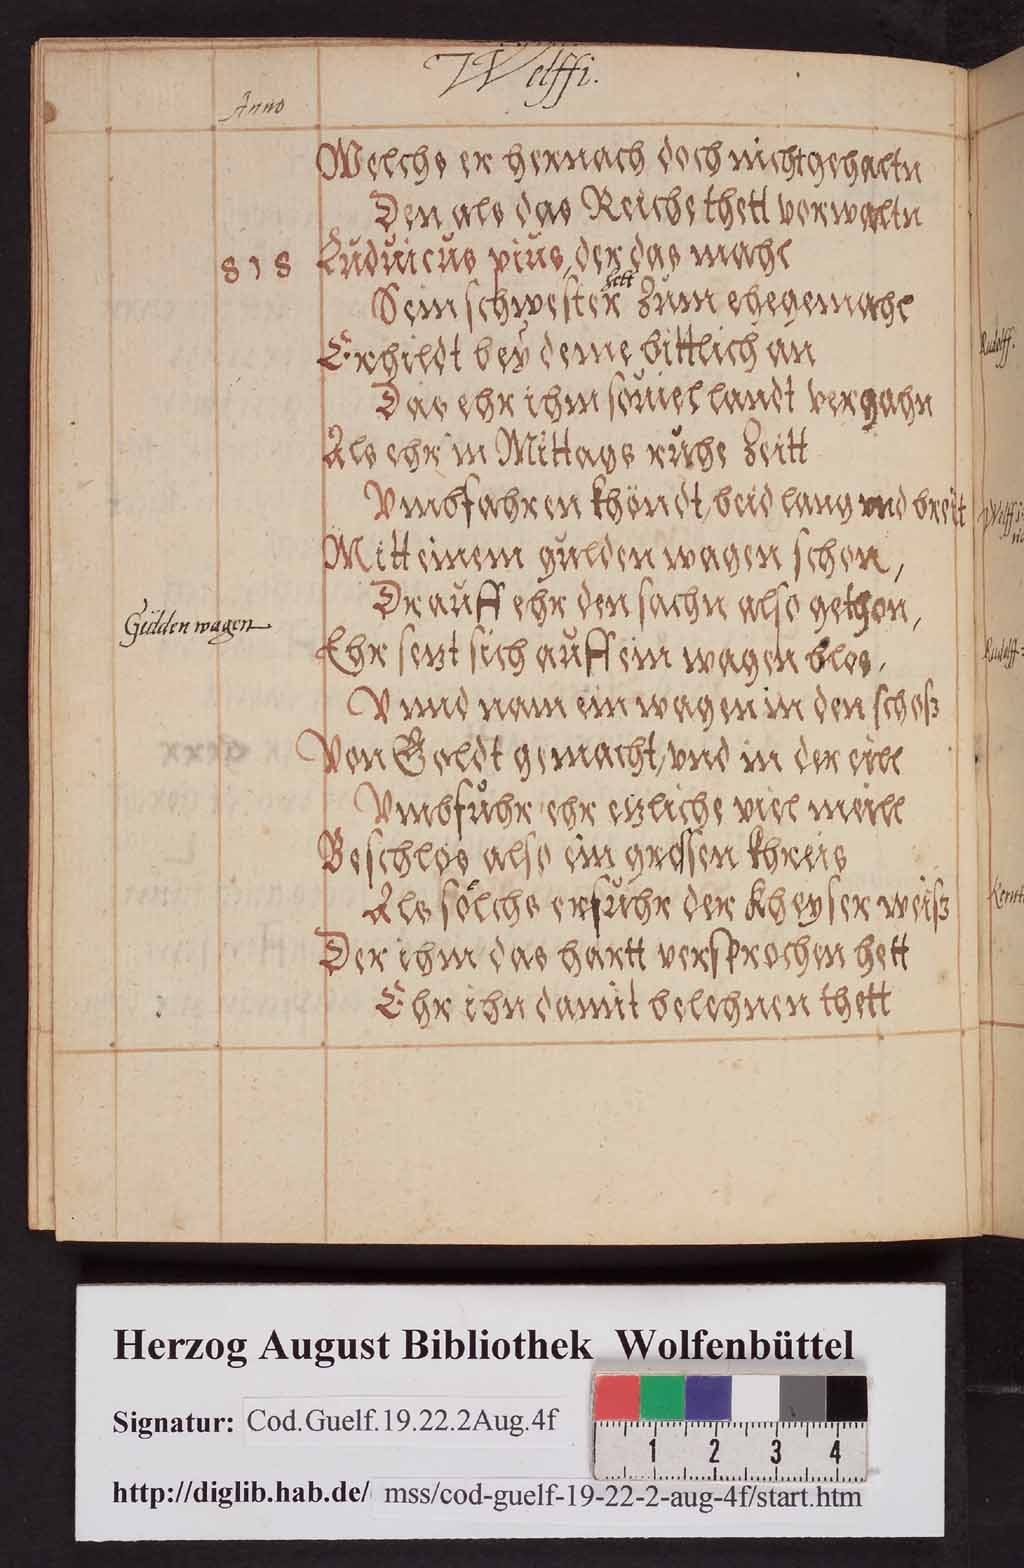 Welffi.
Anno
Welchs er hernach doch nicht gehaltn
Den als das Reichs thett verwaltn
818 Luduicus pius, der das mahl
Sein schwester hett zum ehegemahl
Erhildt bey deme bittlich an
Das ehr ihm souiel landt vergahn
Als ehr in Mittags ruhe zeitt
Vmbfahren khöndt, beid lang vnd breit
Mitt einem gulden wagen schon,
Drauff ehr den sachn also gethon,
Gulden wagen
Ehr sezt sich auff ein wagen blos,
Vnnd nam ein wagen in den schosz
Von Goldt gemacht, vnd in der eill
Vmbfuhr ehr ezliche viel meill
Beschlos also ein grossen khreis
Als sölchs erfuhr der Kheyser weisz
Der ihm das hartt versprochen hett
Ehr ihn damit belehnen thett
Rudolff.
Welffi
Rudolff
Kernt
Herzog August Bibliothek Wolfenbüttel
Signatur: Cod.Guelf.19.22.2Aug.4f
http://diglib.hab.de/ mss/cod-guelf-19-22-2-aug-4f/start.htm
1 2 3 4